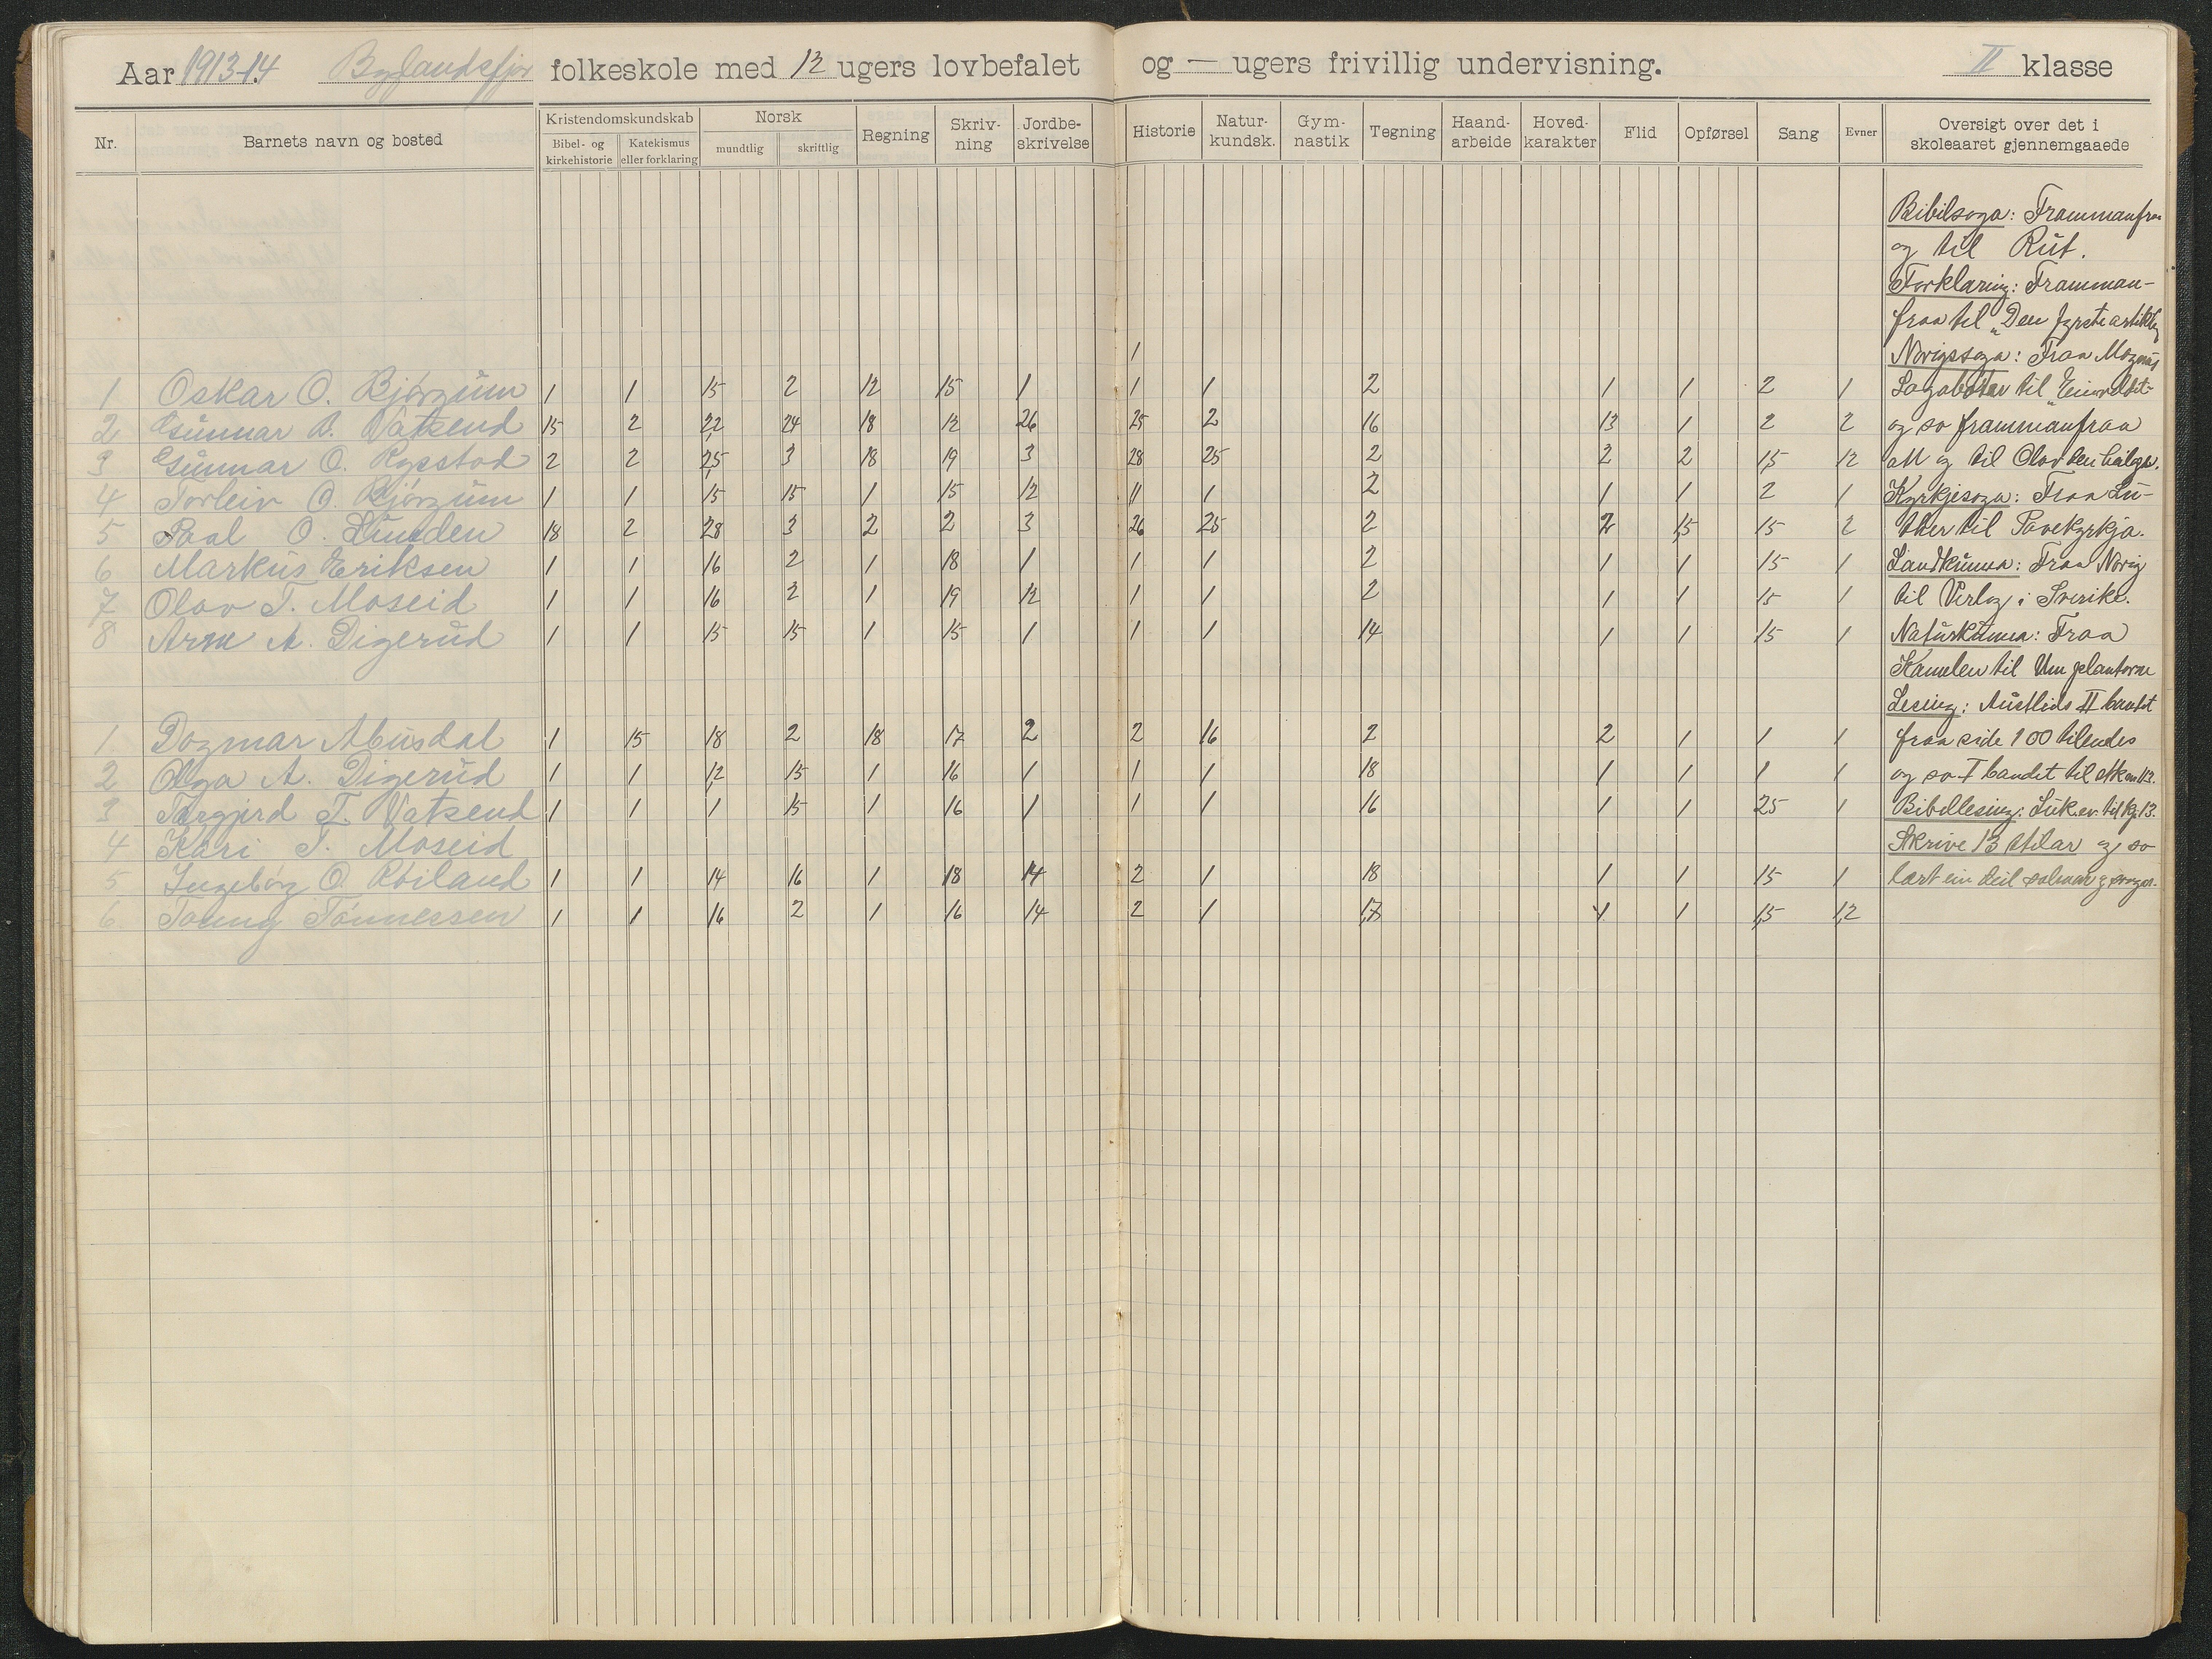 Aar 1913-14 Bylandsfjor folkeskole med 12 ugers lovbefalet og — ugers frivillig undervisning. II klasse
Nr. Barnets navn og bosted Kristendomskundskab Bibel- og kirkehistorie Katekismus eller forklaring Norsk mundtlig skriftlig Regning Skriv-ning Jordbe-skrivelse Historie Natur-kundsk. Gym-nastik Tegning Haand-arbeide Hoved-karakter Flid Opførsel Sang Evner Oversigt over det i skoleaaret gjennemgaaede
Bibilsoga: Frammanfraa
og til Rut.
Forklaring: Framman-
fraa til „Den fyrste artikl
1 Norigssoga: Fraa Magnus
1 Oskar O. Bjørgum 1 1 15 2 12 15 1 1 1 2 1 1 2 1 Lagabøtar til „Einveldet
2 Gunnar O. Vatsend 15 2 22 24 18 12 26 25 2 16 13 1 2 2 og so frammanfraa
3 Gunnar O. Rysstad 2 2 25 3 18 19 3 28 25 2 2 2 15 12 att og til Olav den heilage.
4 Torleiv O. Bjørgum 1 1 15 15 1 15 12 11 1 2 1 1 2 1 Kyrkjesoga: Fraa Lu-
5 Paal O. Lunden 18 2 28 3 2 2 3 26 25 2 2 15 15 2 ther til Pavekyrkja.
6 Markus Eriksen 1 1 16 2 1 18 1 1 1 2 1 1 15 1 Landkunna: Fraa Norig
7 Olav T. Moseid 1 1 16 2 1 19 12 1 1 2 1 1 15 1 til Verlag i Sverike.
8 Arne A. Digerud 1 1 15 15 1 15 1 1 1 14 1 1 15 1 Naturkunna: Fraa
Kamelen til Um plantorne
Lesing: Austlids II bandet
1 Dagmar Abusdal 1 15 18 2 18 17 2 2 16 2 2 1 1 1 fraa side 100 tilendes
2 Olga A. Digerud 1 1 12 15 1 16 1 1 1 18 1 1 1 1 og so I bandet til stk
3 Torgjerd T. Vatsend 1 1 1 15 1 16 1 1 1 16 1 1 25 1 Bibellesing: Luk.ev. til kp. 13.
4 Kari T. Moseid Skrive 13 stilar og so
5 Ingeborg O. Røiland 1 1 14 16 1 18 14 2 1 18 1 1 15 1 lært ein deil salmar og songar.
6 Tønnessen 1 1 16 2 1 16 14 2 1 17 1 1 15 12